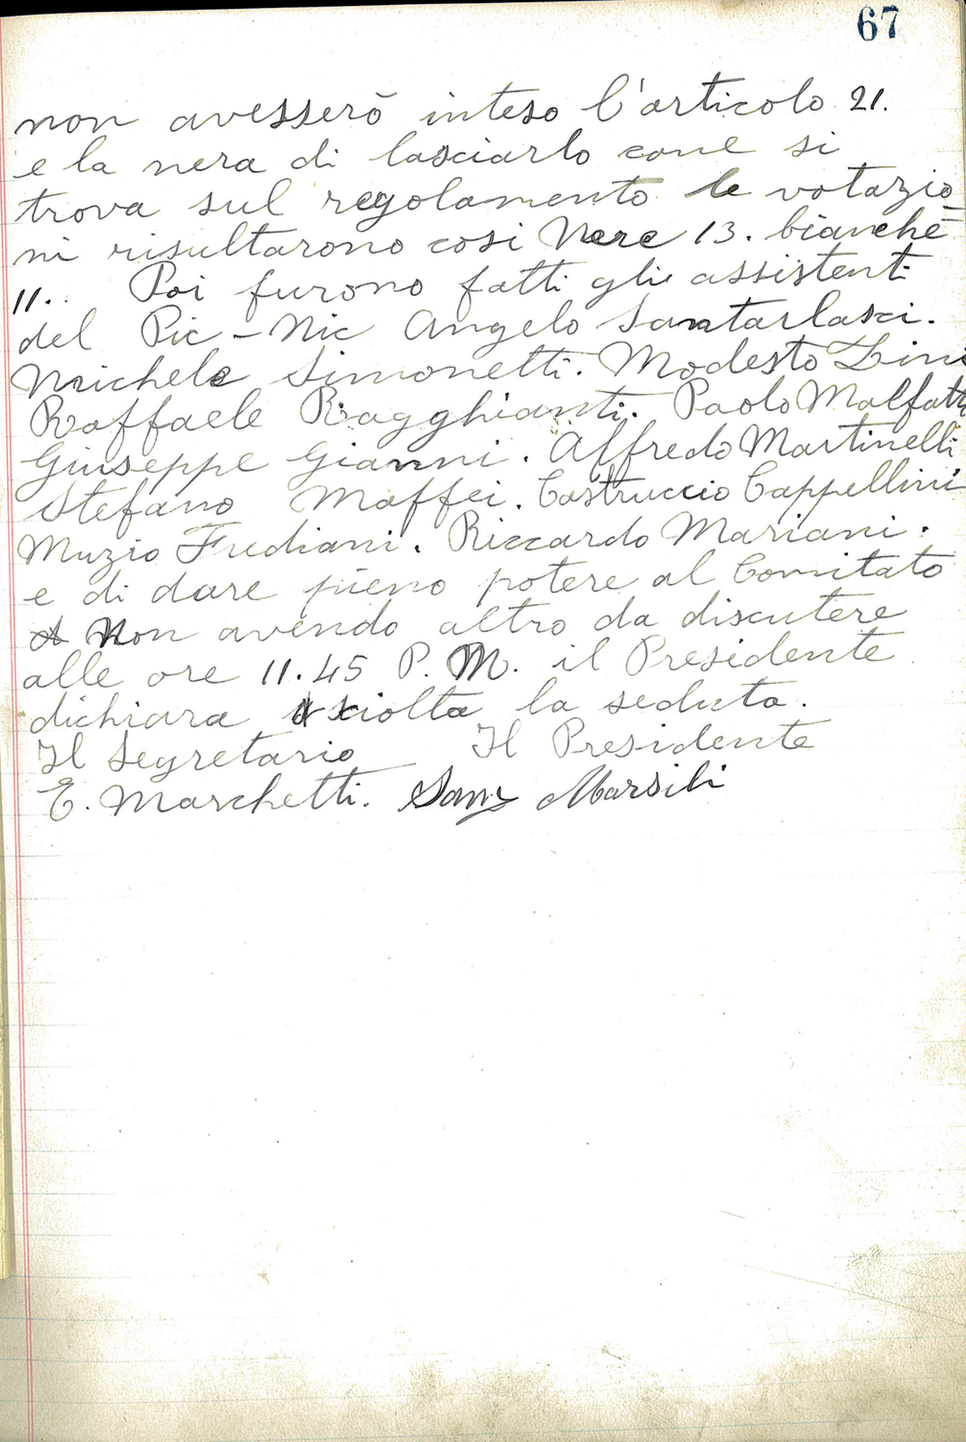 67
non avesserò inteso l'articolo 21.
e la nera di lasciarlo come si
trova sul regolamento le votazio
ni risultarono cosi Nere 13. bianche
11. Poi furono fatti gli assistenti
del Pic-Nic Angelo Santarlasci.
Michele Simonetti. Modesto Lini
Raffaele Ragghianti. Paolo Malfatti
Giuseppe Gianni. Alfredo Martinelli
Stefano Maffei. Castruccio Cappellini
Muzio Frediani. Riccardo Mariani.
e di dare pieno potere al Comitato
Non avendo altro da discutere
alle ore 11.45 P. M. il Presidente
dichiara sciolta la seduta.
Il Segretario Il Presidente
E. Marchetti. Sam Marsili